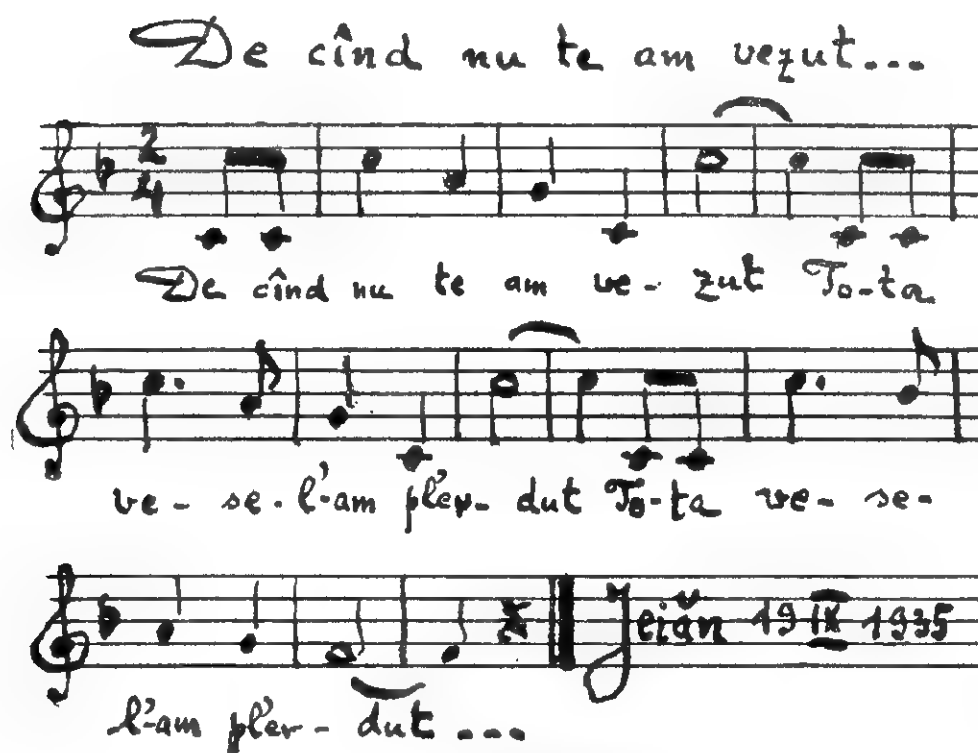 De cînd nu te am vezut...
2
4
De cînd nu te am ve- zut To-ta
ve- se-l'-am pl'er- dut To-ta ve- se-
19 IX 1935
l'-am pl'er- dut ....